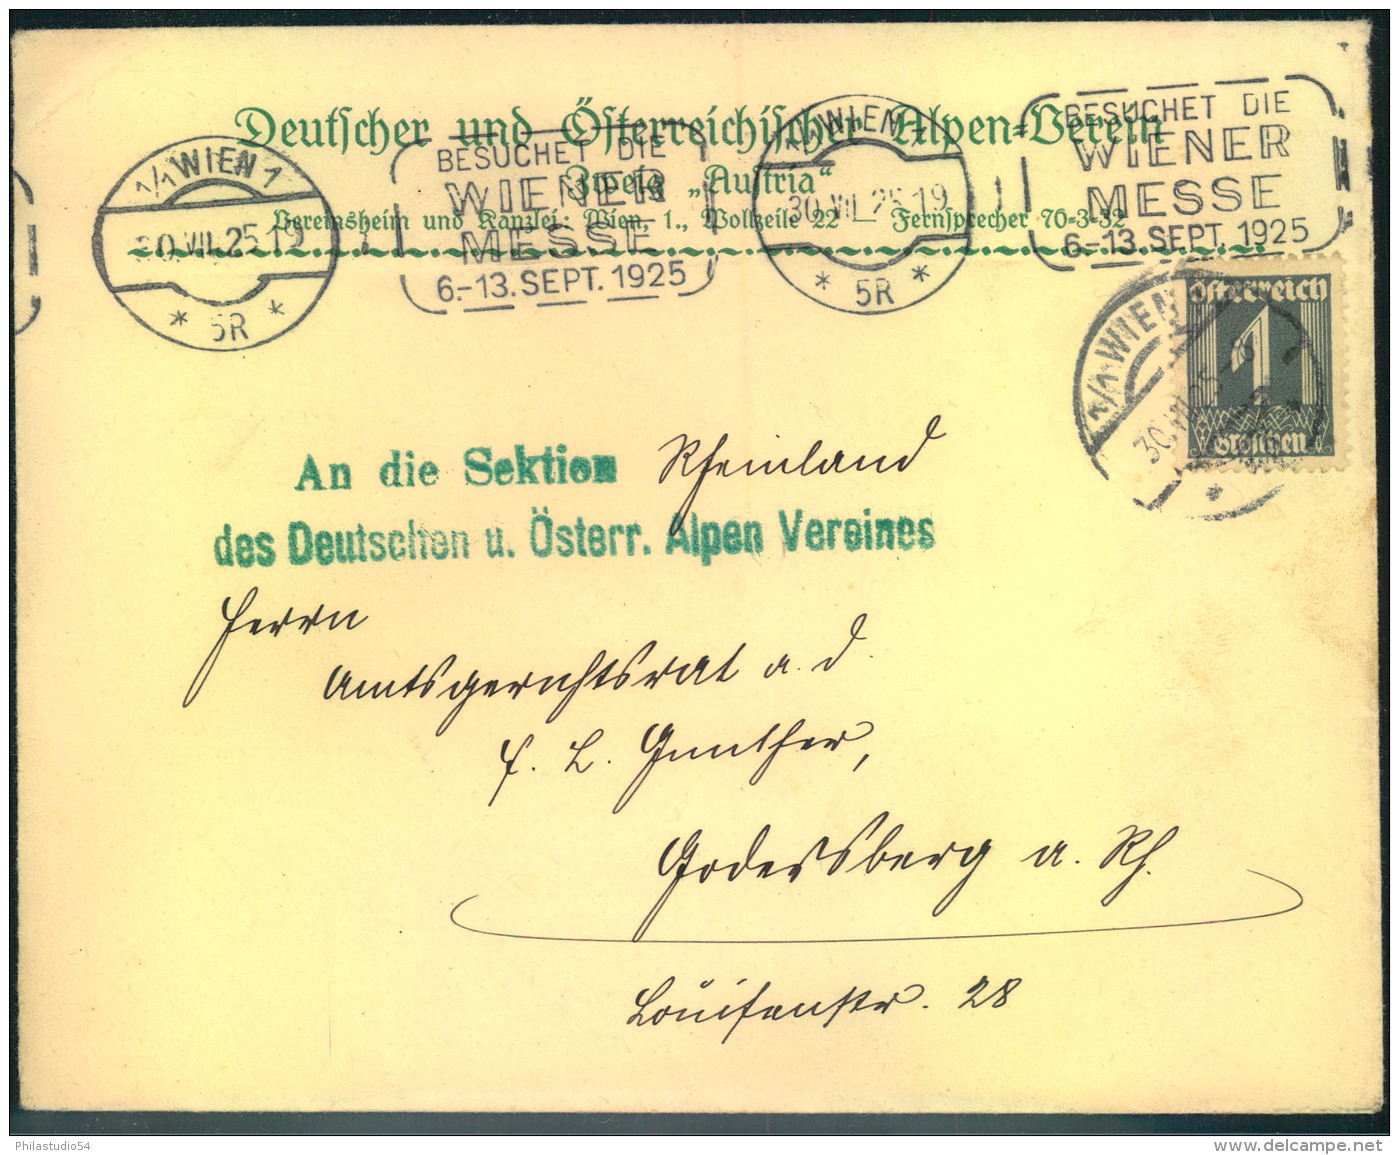 Deutscher und Österreichischer Alpen-Verein
Zweig „Austria“
Vereinsheim und Kanzlei: Wien, 1., Wollzeile 22 — Fernsprecher 70-3-32
1/1 WIEN 1
30.VII.25 19
* 5R *
BESUCHET DIE
WIENER
MESSE
6.-13. SEPT. 1925
1/1 WIEN 1
30.VII.25 19
* 5R *
BESUCHET DIE
WIENER
MESSE
6.-13. SEPT. 1925
Österreich
1
Groschen
1/1 WIEN
30.VII.25
*
An die Sektion Rheinland
des Deutschen u. Österr. Alpen Vereines
Herrn
Amtsgerichtsrat a. d.
F. L. Gunther,
Godessberg a. Rh.
Louisenstr. 28
Philastudio54
www.delcampe.net